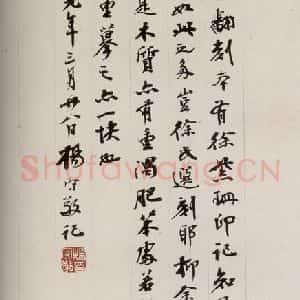 翻刻本有徐紫珊印記知
如此之多豈徐氏選刻耶抑余
是木質亦有重濁肥笨處若
重摹之亦一快也
元年三月廿八日楊守敬記
Shufawang.CN